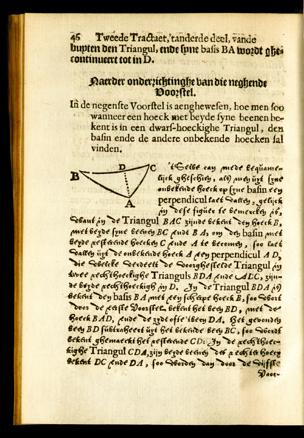 46 Tweede Tractaet, 'tanderde deel, vande
buyten den Triangul, ende syne basis BA wordt ghe-
continueert tot in D.
Naerder onderrichtinghe van die neghende
Voorstel.
In de negenste Voorstel is aenghewesen, hoe men soo
wanneer een hoeck met beyde syne beenen be-
kent is in een dwars-hoeckighe Triangul, den
basin ende de andere onbekende hoecken sal
vinden.
B D C
A
'tSelve can mede bequame-
lijck gheschien, als men uyt syne
onbekende hoeck op syne basin een
perpendicul laet dallen, gelijck
in dese figure te bemercken is,
want in de Triangul BAC zijnde bekent den hoeck B,
met beyde syne beenen BC ende BA, om den basin met
beyde resterende hoecken C ende A te becomen, soo laet
dallen uyt de onbekende hoeck A een perpendicul AD,
die welcke verdeelt de voorghestelde Triangul in
twee rechthoeckighe Trianguls BDA ende ADC, zijn-
de beyde rechthoeckigh in D. In de Triangul BDA is
bekent den basin BA met een scherpe hoeck B, soo wort
door de eerste Voorstel bekent het been BD, met de
hoeck BAD, ende de zyde ofte 'tbeen DA. Het gevonden
been BD subtraheert uyt het bekende been BC, soo wordt
bekent ghemaeckt het resterende CD: In de rechthoec-
kighe Triangul CDA, zijn beyde beenen des rechten hoecx
bekent DC ende DA, soo worden dan door de vijfste
Voor-